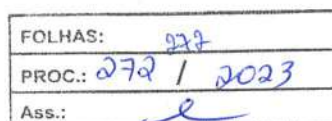 FOLHAS: 272
PROC.: 272 / 2023
Ass.: